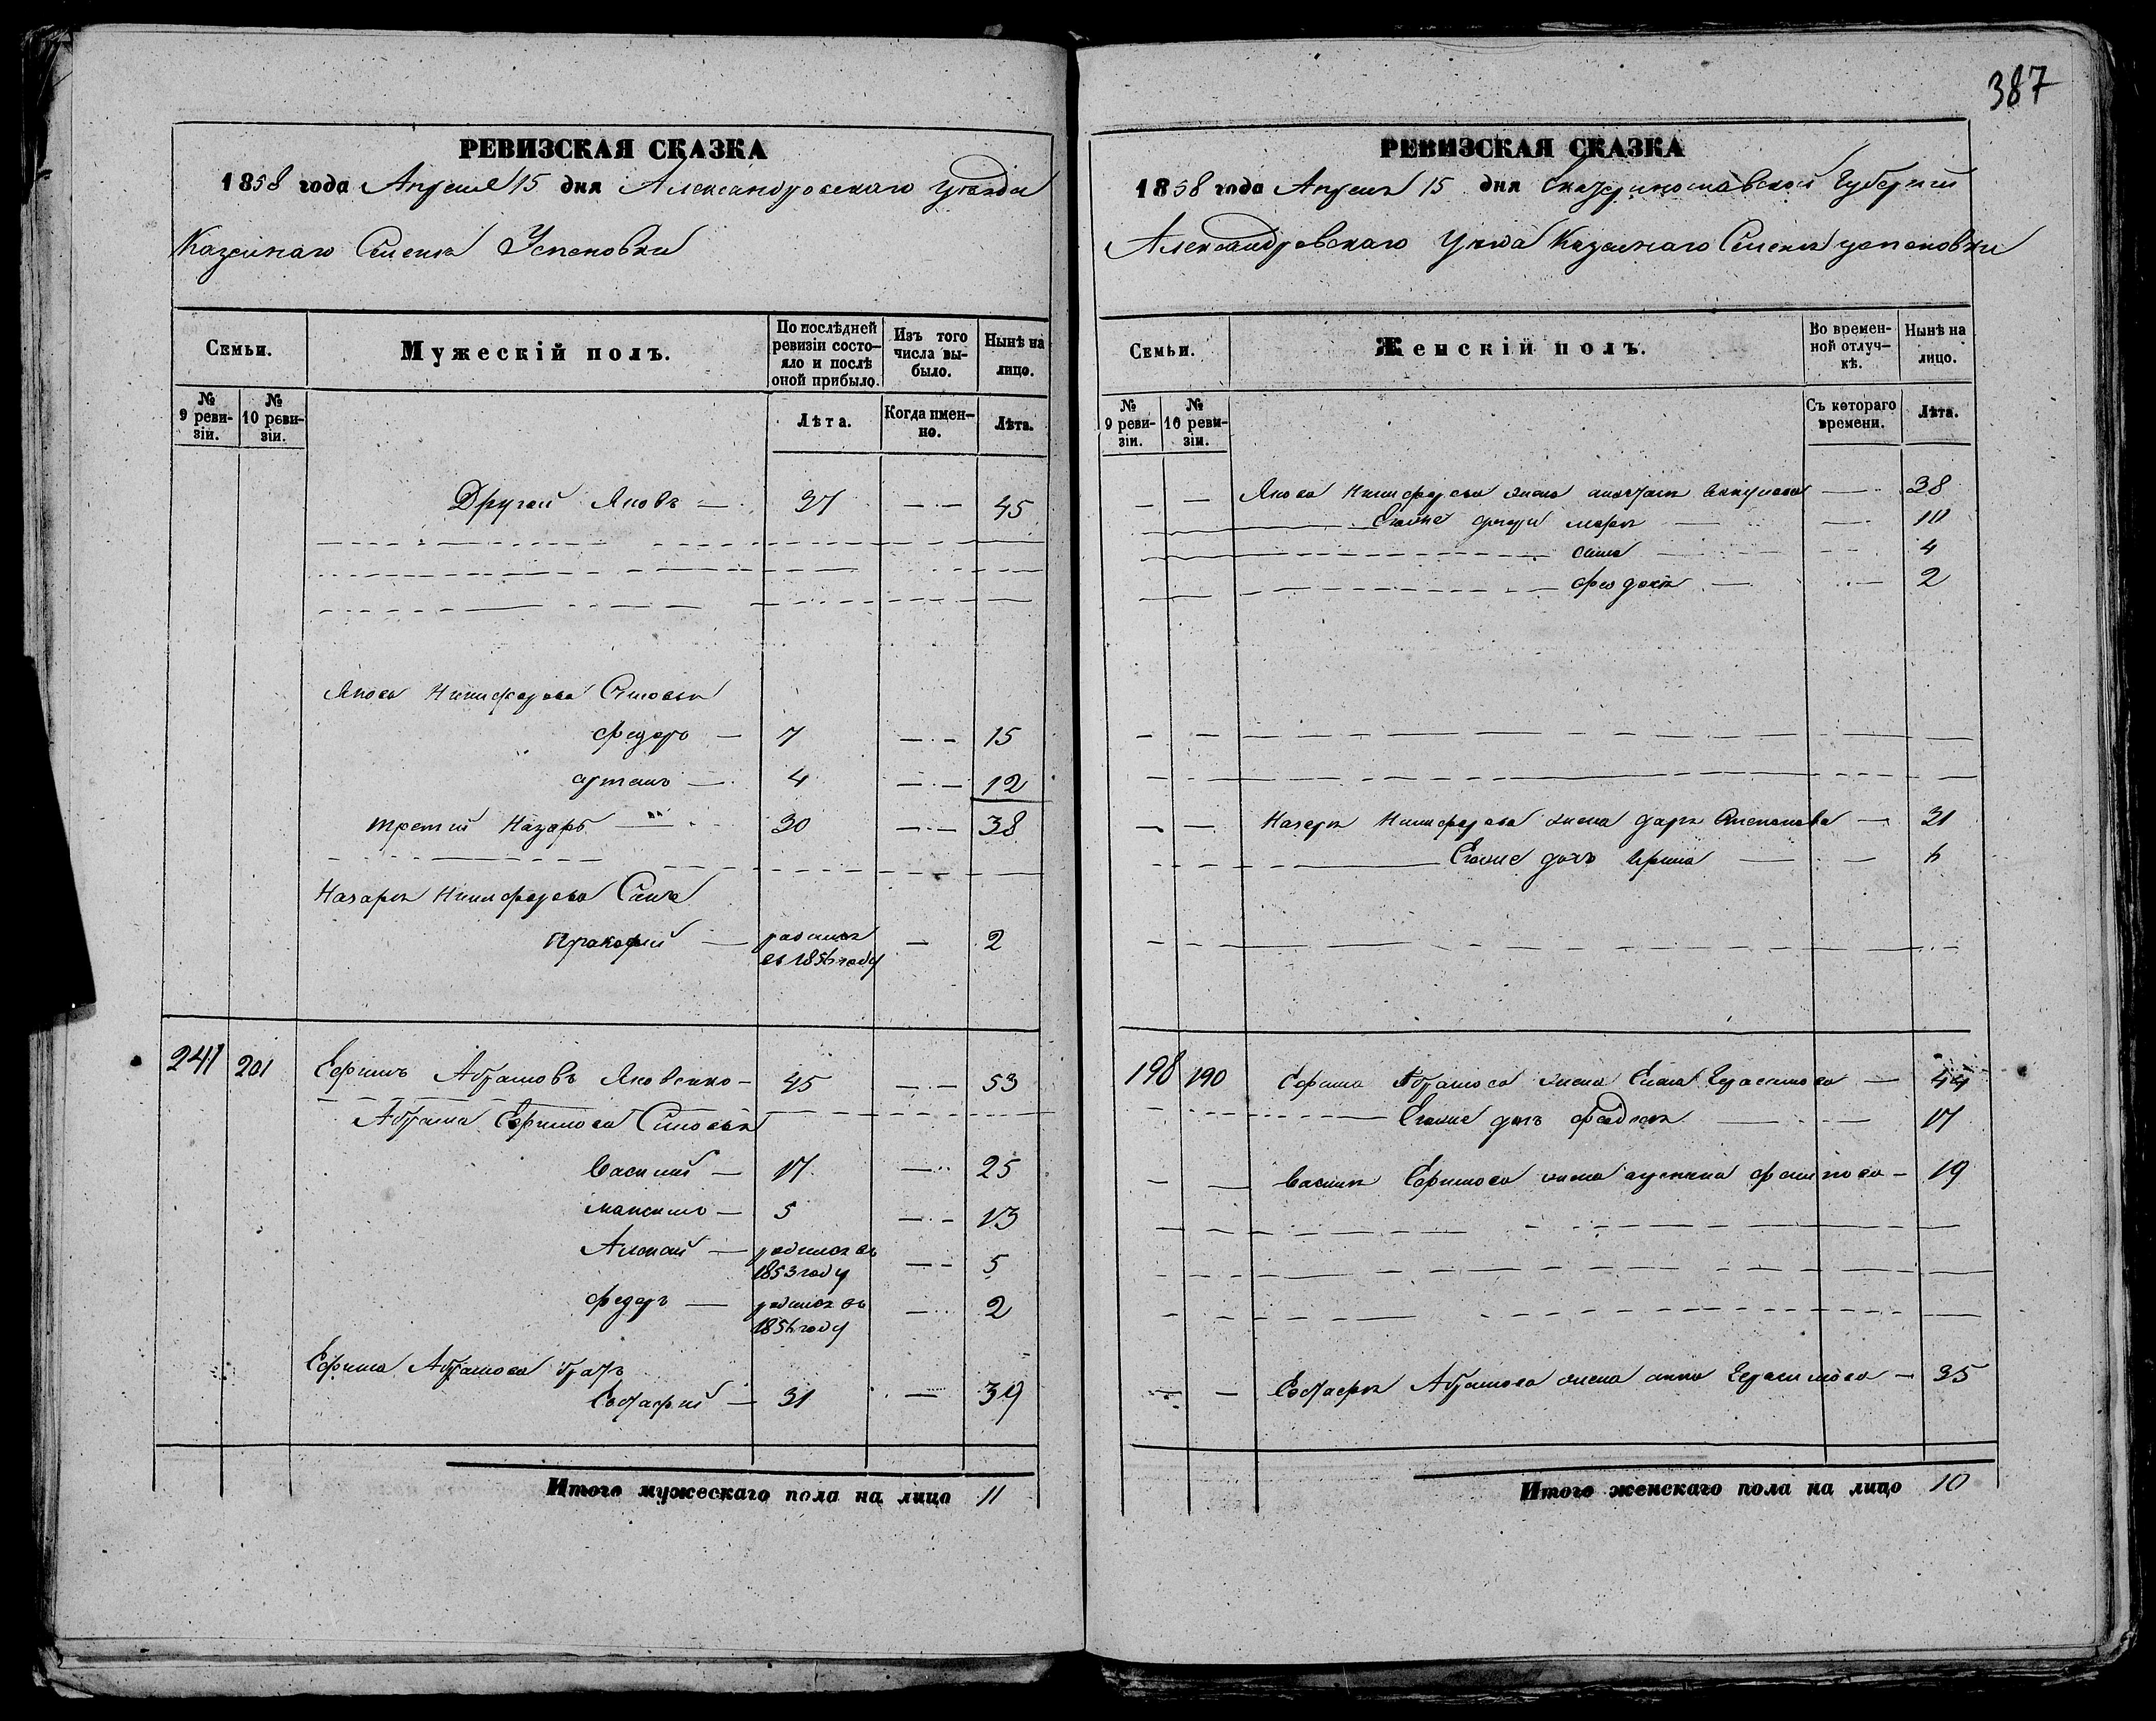 387
РЕВИЗСКАЯ СКАЗКА
1858 года Апреля 15 дня Александровскаго уезда
Казеннаго Селенія Успеновки
Семьи.
Мужескій полъ.
По послѣдней ревизіи состо-
яло и послѣ оной прибыло.
Изъ того числа вы-
было.
Нынѣ на лицо.
№ 9 реви-
зіи.
№ 10 реви-
зіи.
Лѣта.
Когда имен-
но.
Лѣта.
Другой Яковъ — 37 — 45
Якова Никифорова Сыновья
Федоръ — 7 — 15
Артемъ — 4 — 12
третій Назаръ — 30 — 38
Назара Никифорова Сынъ
Прокофій — родился — 2
въ 1856 году
241 201 Ефимъ Абрамовъ Яковенко — 45 — 53
Абрама Ефимова Сыновья
Василій — 17 — 25
Максимъ — 5 — 13
Алексей — родился въ — 5
1853 году
Федоръ — родился въ — 2
1856 году
Ефима Абрамова братъ
Евстафій — 31 — 39
Итого мужескаго пола на лицо 11
РЕВИЗСКАЯ СКАЗКА
1858 года Апреля 15 дня Екатеринославской Губерніи
Александровскаго уезда Казеннаго Селенія успеновки
Семьи.
Женскій полъ.
Во времен-
ной отлуч-
кѣ.
Нынѣ на лицо.
№ 9 реви-
зіи.
№ 10 реви-
зіи.
Съ котораго времени.
Лѣта.
Якова Никифорова жена — 38
Егоже дочери марья — 10
— 4
феодосья — 2
Назара Никифорова жена дарья Степанова — 31
Егоже дочь Ирина — 6
198 190 Ефима Абрамова жена Герасимова — 44
Егоже дочь — 17
Василія Ефимова жена — 19
Евстафія Абрамова жена анна Герасимова — 35
Итого женскаго пола на лицо 10